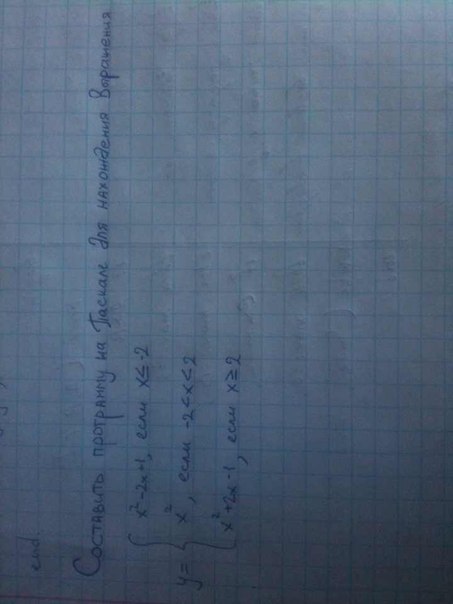 end
Составить программу на Паскале для нахождения выражения
x²-2x+1, если x≤-2
y= { x², если -2<x≤2
x²+2x-1, если x≥2